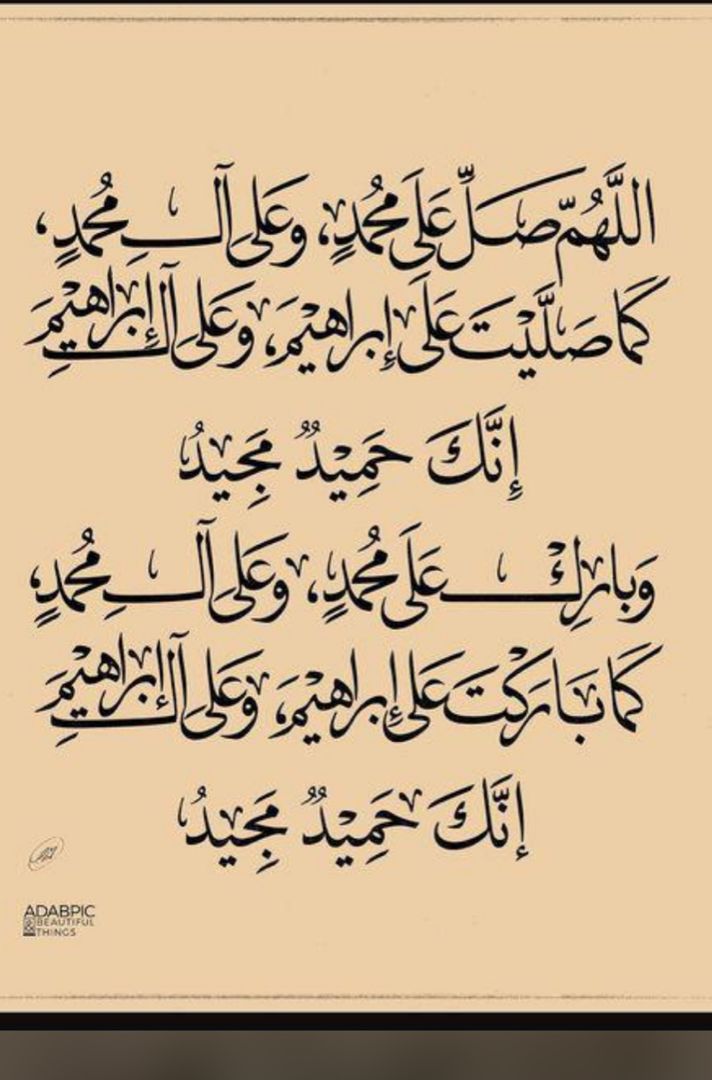 اللَّهُمّ صَلِّ عَلَى مُحمدٍ، وعَلى آلِ مُحمدٍ،
كَمَا صَلَّيْتَ عَلَى إبراهيْمَ، وعَلى آلِ إبراهيْمَ
إنَّكَ حَمِيْدٌ مَجِيدُ
وَبارِكْ عَلَى مُحمدٍ، وعَلى آلِ مُحمدٍ،
كَمَا بَارَكْتَ عَلى إبراهيْمَ، وعَلى آلِ إبراهيْمَ
إنَّكَ حَمِيْدٌ مَجِيدُ
ADABPIC
BEAUTIFUL
THINGS